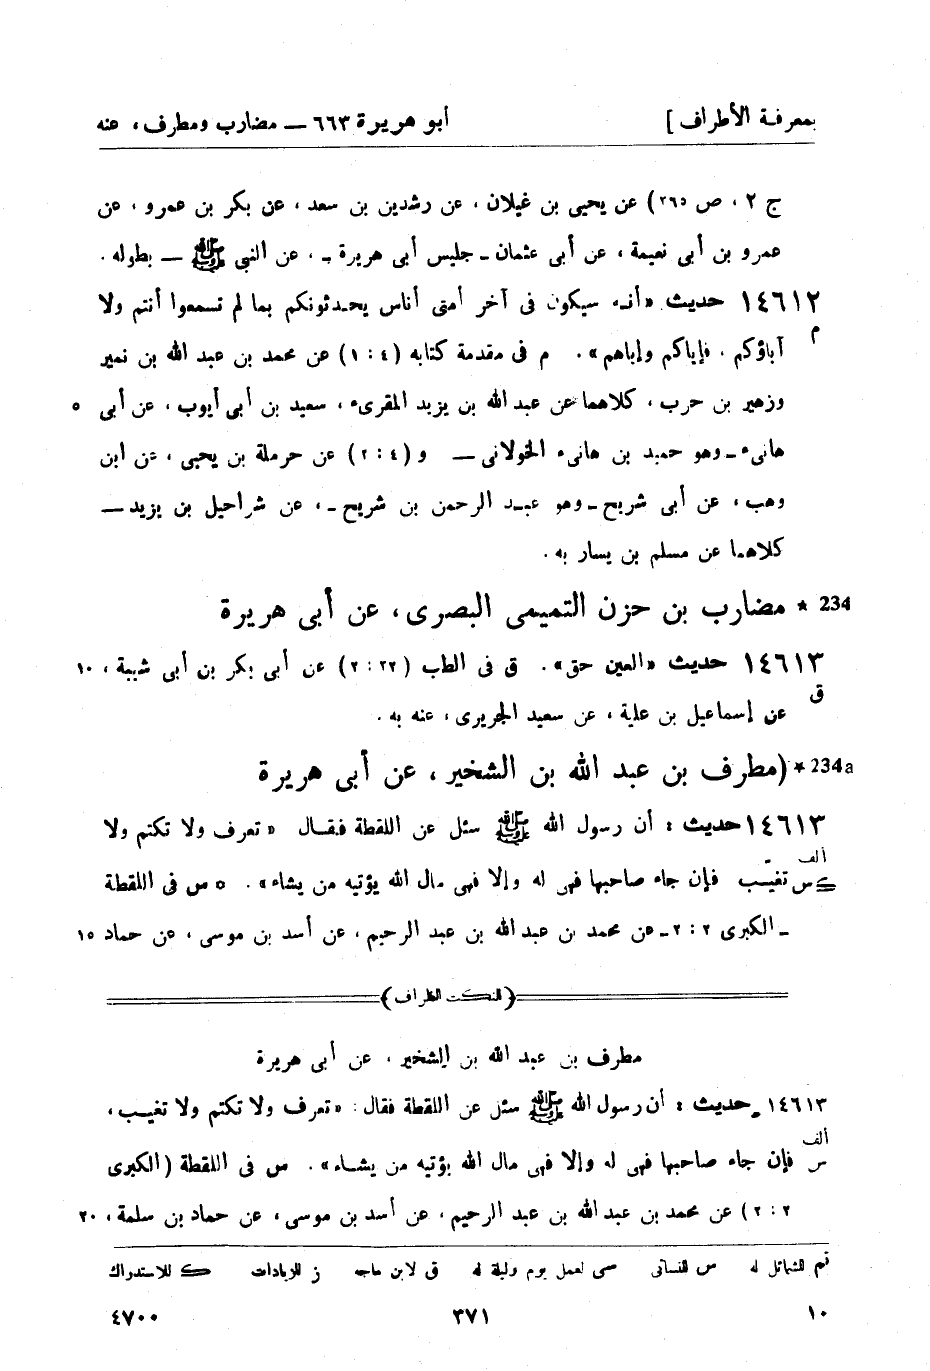 بمعرفة الأطراف] أبو هريرة ٦٦٣ — مضارب ومطرف، عنه
ج ٢، ص ٢٦٥) عن يحيى بن غيلان، عن رشدين بن سعد، عن بكر بن عمرو، عن
عمرو بن أبى نعيمة، عن أبى عثمان ـ جليس أبى هريرة ـ، عن النبى ﷺ — بطوله.
١٤٦١٢ حديث «أنه سيكون فى آخر أمتى أناس يحدثونكم بما لم تسمعوا أنتم ولا
م آباؤكم، فإياكم وإياهم». م فى مقدمة كتابه (٤ : ١) عن محمد بن عبد الله بن نمير
وزهير بن حرب، كلاهما عن عبد الله بن يزيد المقرىء، سعيد بن أبى أيوب، عن أبى ٥
هانىء ـ وهو حميد بن هانىء الخولانى — و (٤ : ٢) عن حرملة بن يحيى، عن ابن
وهب، عن أبى شريح ـ وهو عبد الرحمن بن شريح ـ، عن شراحيل بن يزيد —
كلاهما عن مسلم بن يسار به.
234 * مضارب بن حزن التميمى البصرى، عن أبى هريرة
١٤٦١٣ حديث «العين حق». ق فى الطب (٣٢ : ٢) عن أبى بكر بن أبى شيبة، ١٠
ق عن إسماعيل بن علية، عن سعيد الجريرى، عنه به.
234a * (مطرف بن عبد الله بن الشخير، عن أبى هريرة
١٤٦١٣ حديث : أن رسول الله ﷺ سئل عن اللقطة فقال «تعرف ولا تكتم ولا
ألف
ك س تغيّب فإن جاء صاحبها فهى له وإلا فهى مال الله يؤتيه من يشاء». ٥ س فى اللقطة
ـ الكبرى ٢ : ٢ ـ عن محمد بن عبد الله بن عبد الرحيم، عن أسد بن موسى، عن حماد ١٥
(النكت الظراف)
مطرف بن عبد الله بن الشخير، عن أبى هريرة
١٤٦١٣ـ حديث : أن رسول الله ﷺ سئل عن اللقطة فقال : «تعرف ولا تكتم ولا تغيب،
ألف
س فإن جاء صاحبها فهى له وإلا فهى مال الله يؤتيه من يشاء». س فى اللقطة (الكبرى
٢ : ٢) عن محمد بن عبد الله بن عبد الرحيم، عن أسد بن موسى، عن حماد بن سلمة، ٢٠
تم للشمائل له س للنسائى سى لعمل يوم وليلة له ق لابن ماجه ز للزيادات ك للاستدراك
١٠ ٣٧١ ٤٧٠٠